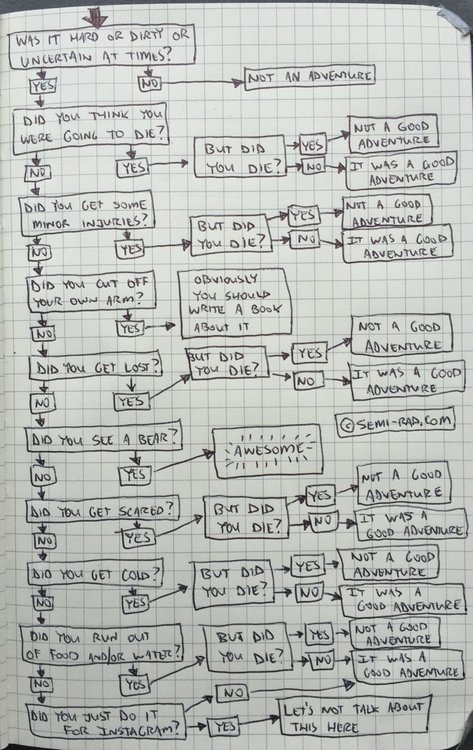 WAS IT HARD OR DIRTY OR
UNCERTAIN AT TIMES?
YES
NO
NOT AN ADVENTURE
DID YOU THINK YOU
WERE GOING TO DIE?
NO
YES
BUT DID
YOU DIE?
YES
NO
NOT A GOOD
ADVENTURE
IT WAS A GOOD
ADVENTURE
DID YOU GET SOME
MINOR INJURIES?
NO
YES
BUT DID
YOU DIE?
YES
NO
NOT A GOOD
ADVENTURE
IT WAS A GOOD
ADVENTURE
DID YOU CUT OFF
YOUR OWN ARM?
NO
YES
OBVIOUSLY
YOU SHOULD
WRITE A BOOK
ABOUT IT
DID YOU GET LOST?
NO
YES
BUT DID
YOU DIE?
YES
NO
NOT A GOOD
ADVENTURE
IT WAS A GOOD
ADVENTURE
© SEMI-RAD.COM
DID YOU SEE A BEAR?
NO
YES
AWESOME
DID YOU GET SCARED?
NO
YES
BUT DID
YOU DIE?
YES
NO
NOT A GOOD
ADVENTURE
IT WAS A
GOOD ADVENTURE
DID YOU GET COLD?
NO
YES
BUT DID
YOU DIE?
YES
NO
NOT A GOOD
ADVENTURE
IT WAS A
GOOD ADVENTURE
DID YOU RUN OUT
OF FOOD AND/OR WATER?
NO
YES
BUT DID
YOU DIE?
YES
NO
NOT A GOOD
ADVENTURE
IT WAS A
GOOD ADVENTURE
DID YOU JUST DO IT
FOR INSTAGRAM?
NO
YES
LET'S NOT TALK ABOUT
THIS HERE